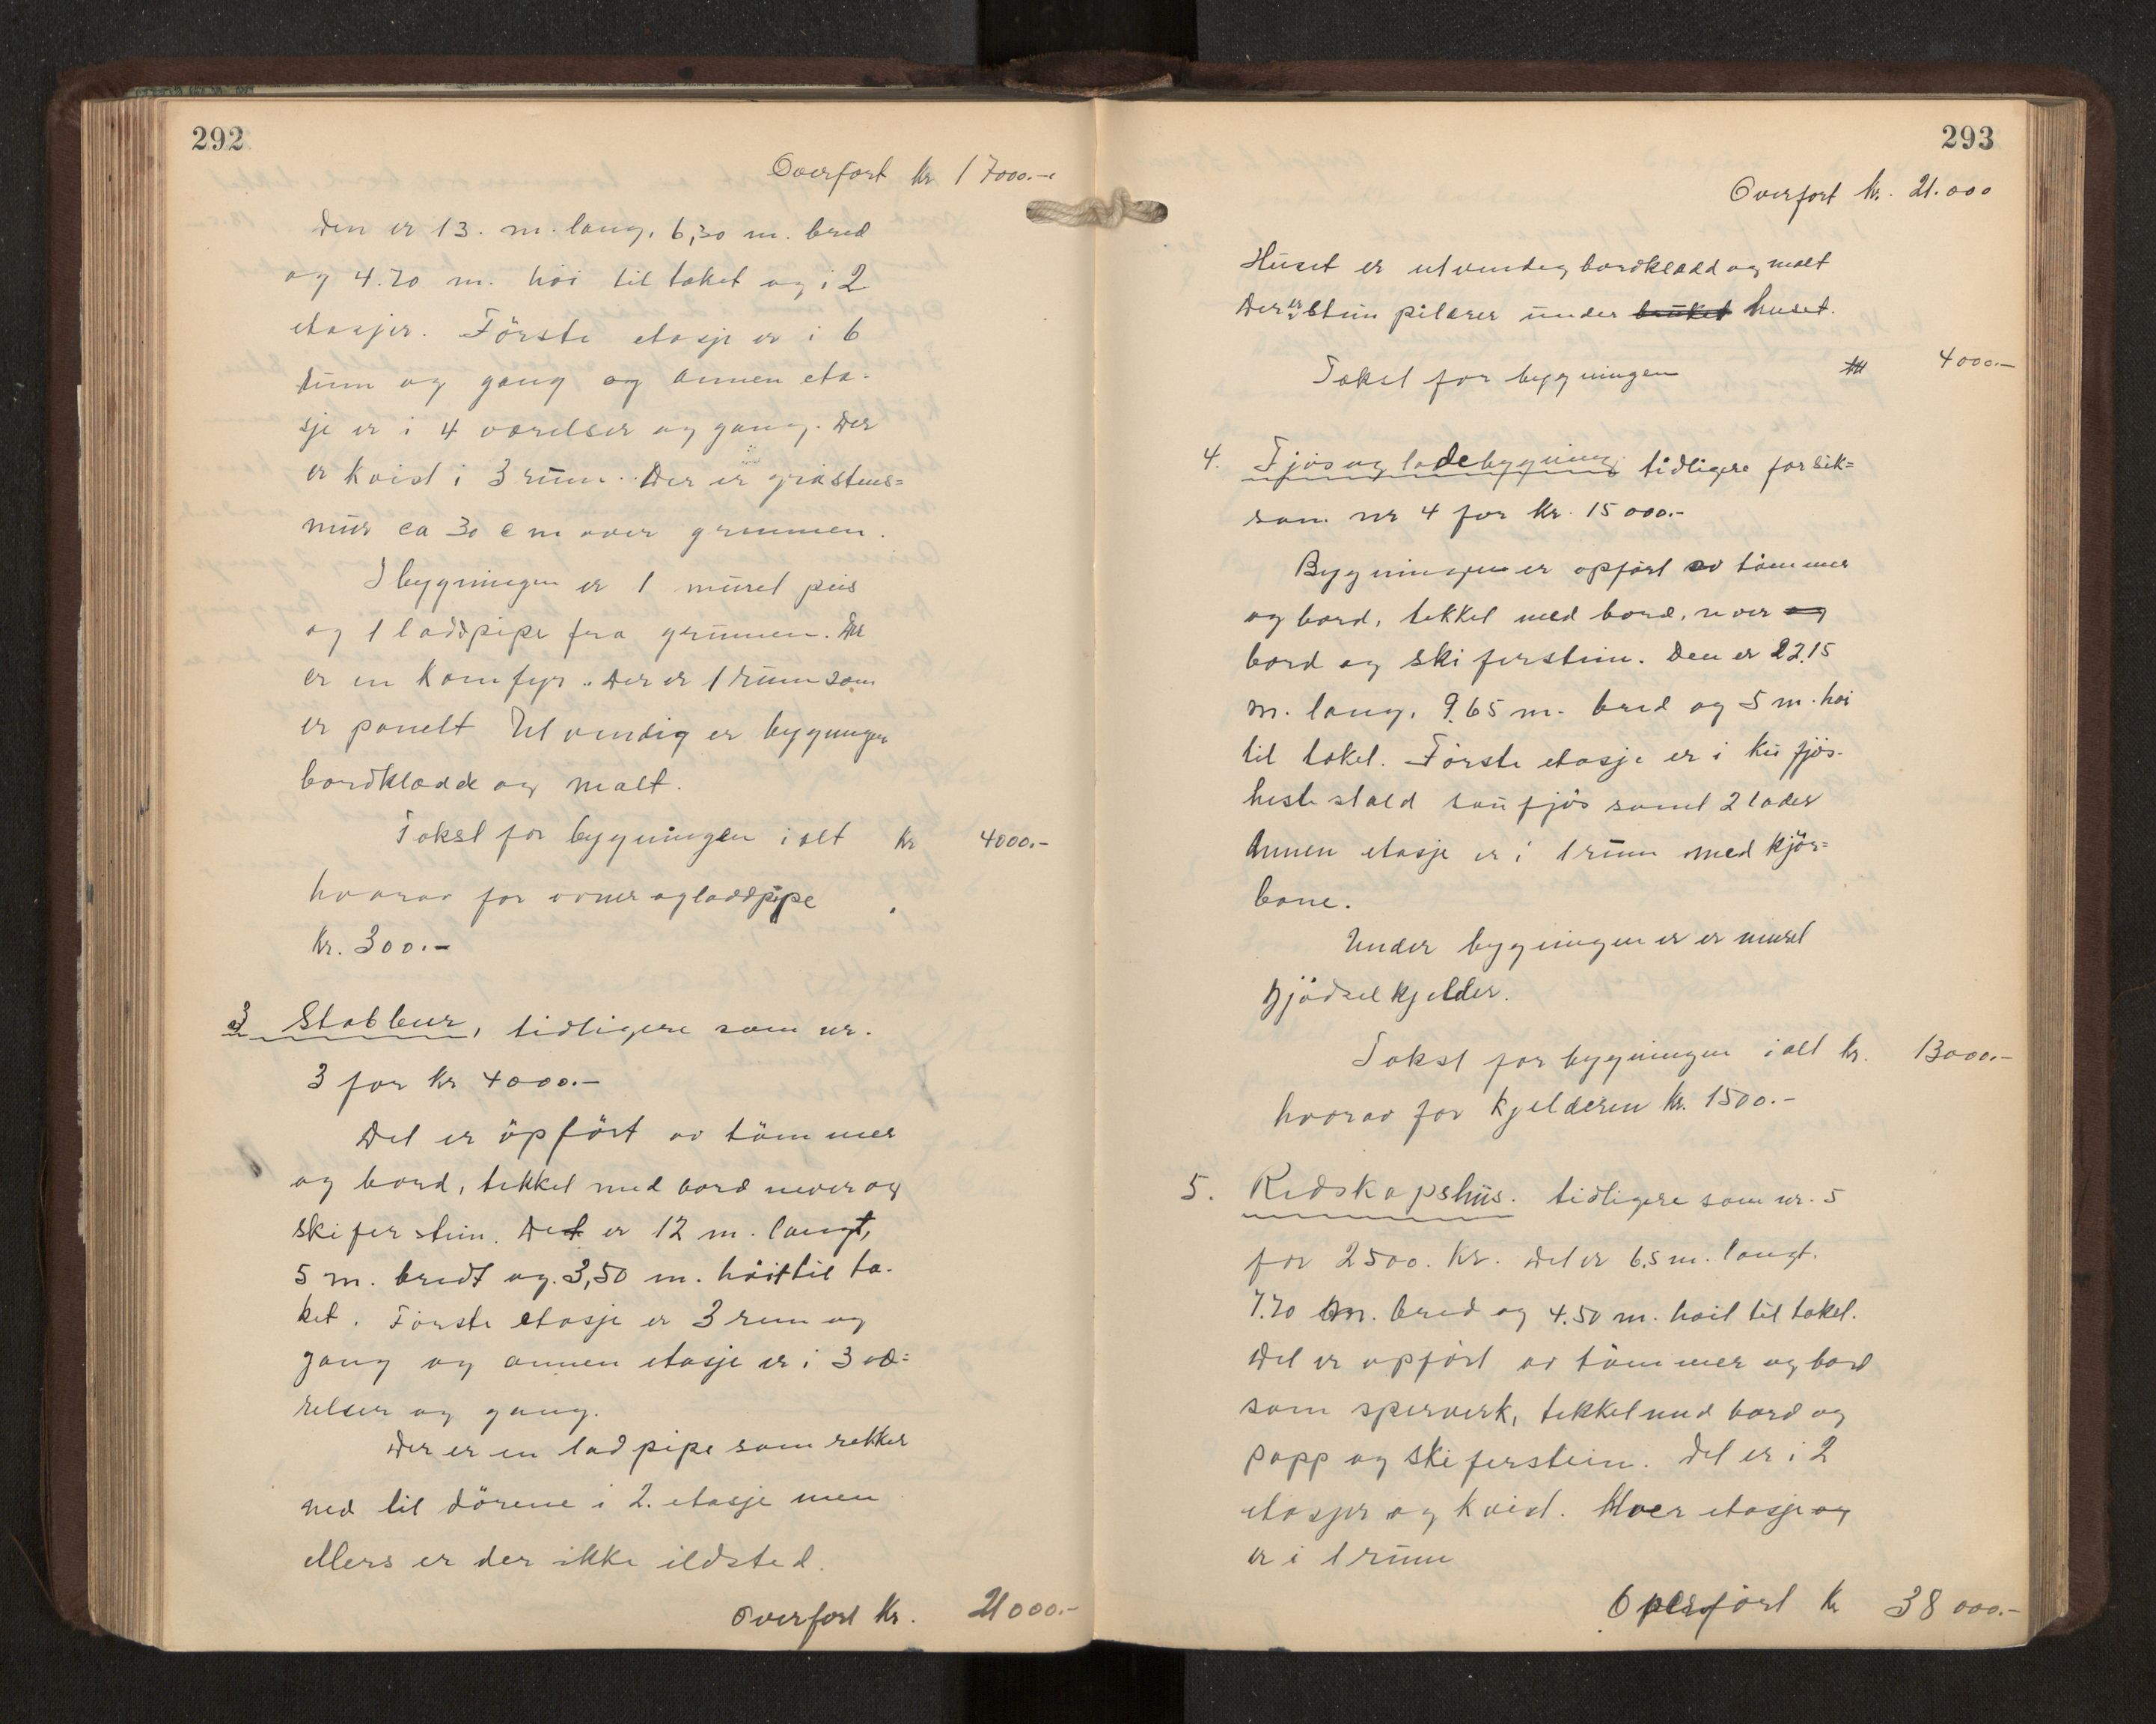 292
Overført kr 17000.-
Den er 13. m. lang, 6,30 m. bred
og 4.70 m. höi til taket og i 2
etasjer. Förste etasje er i 6
rum og gang og annen eta-
sje er i 4 værelser og gang. Der
er kvist i 3 rum. Der er gråstens=
mur ca 30 cm over grunnen.
I bygningen er 1 muret peis
og 1 laddpipe fra grunnen. Der
er en komfyr. Der er 1 rum som
er panelt Utvendig er bygningen
bordklædd og malt.
Takst for bygningen i alt kr 4000.-
hvorav for ovner og laddpipe
kr. 300.-
3 Stabbur, tidligere som nr.
3 for kr 4000.-
Det er öpfört av tömmer
og bord, tekket med bord never og
skiferstein. Det er 12 m. langt,
5 m. bredt og 3,50 m. höit til ta-
ket. Förste etasje er 3 rum og
gang og annen etasje er i 3 væ=
relser og gang.
Der er en ladpipe som rekker
ned til dörene i 2. etasje men
ellers er der ikke ildsted.
Overfort kr. 21000.-
293
Overfort kr. 21.000
Huset er utvendig bordklædd og malt
Der er stein pilarer under bruket huset.
Takst for bygningen 4000.-
4. Fjös og ladebygning tidligere forsik=
som nr 4 for kr. 15000.-
Bygningen er opfört av tömmer
og bord, tekket med bord, never og
bord og skiferstein. Den er 22.15
m. lang, 9.65 m. bred og 5 m. höi
til taket. Förste etasje er i ku fjös-
hestestald sau fjös samt 2 lader
Annen etasje er i 1 rum med kjör=
bane.
Under bygningen er er muret
gjödselkjelder.
Takst for bygningen i alt kr. 13000.-
hvorav for kjelderen kr. 1500.-
5. Redskapshus. tidligere som nr. 5
for 2500. kr. Det er 6.5 m. langt.
7.70 m. bred og 4.50 m. höit til taket.
Det er opfört av tömmer og bord
som sperverk, tekket med bord og
papp og skiferstein. Det er i 2
etasjer og kvist. Hver etasje og
er i 1 rum
Overfört kr 38000.-